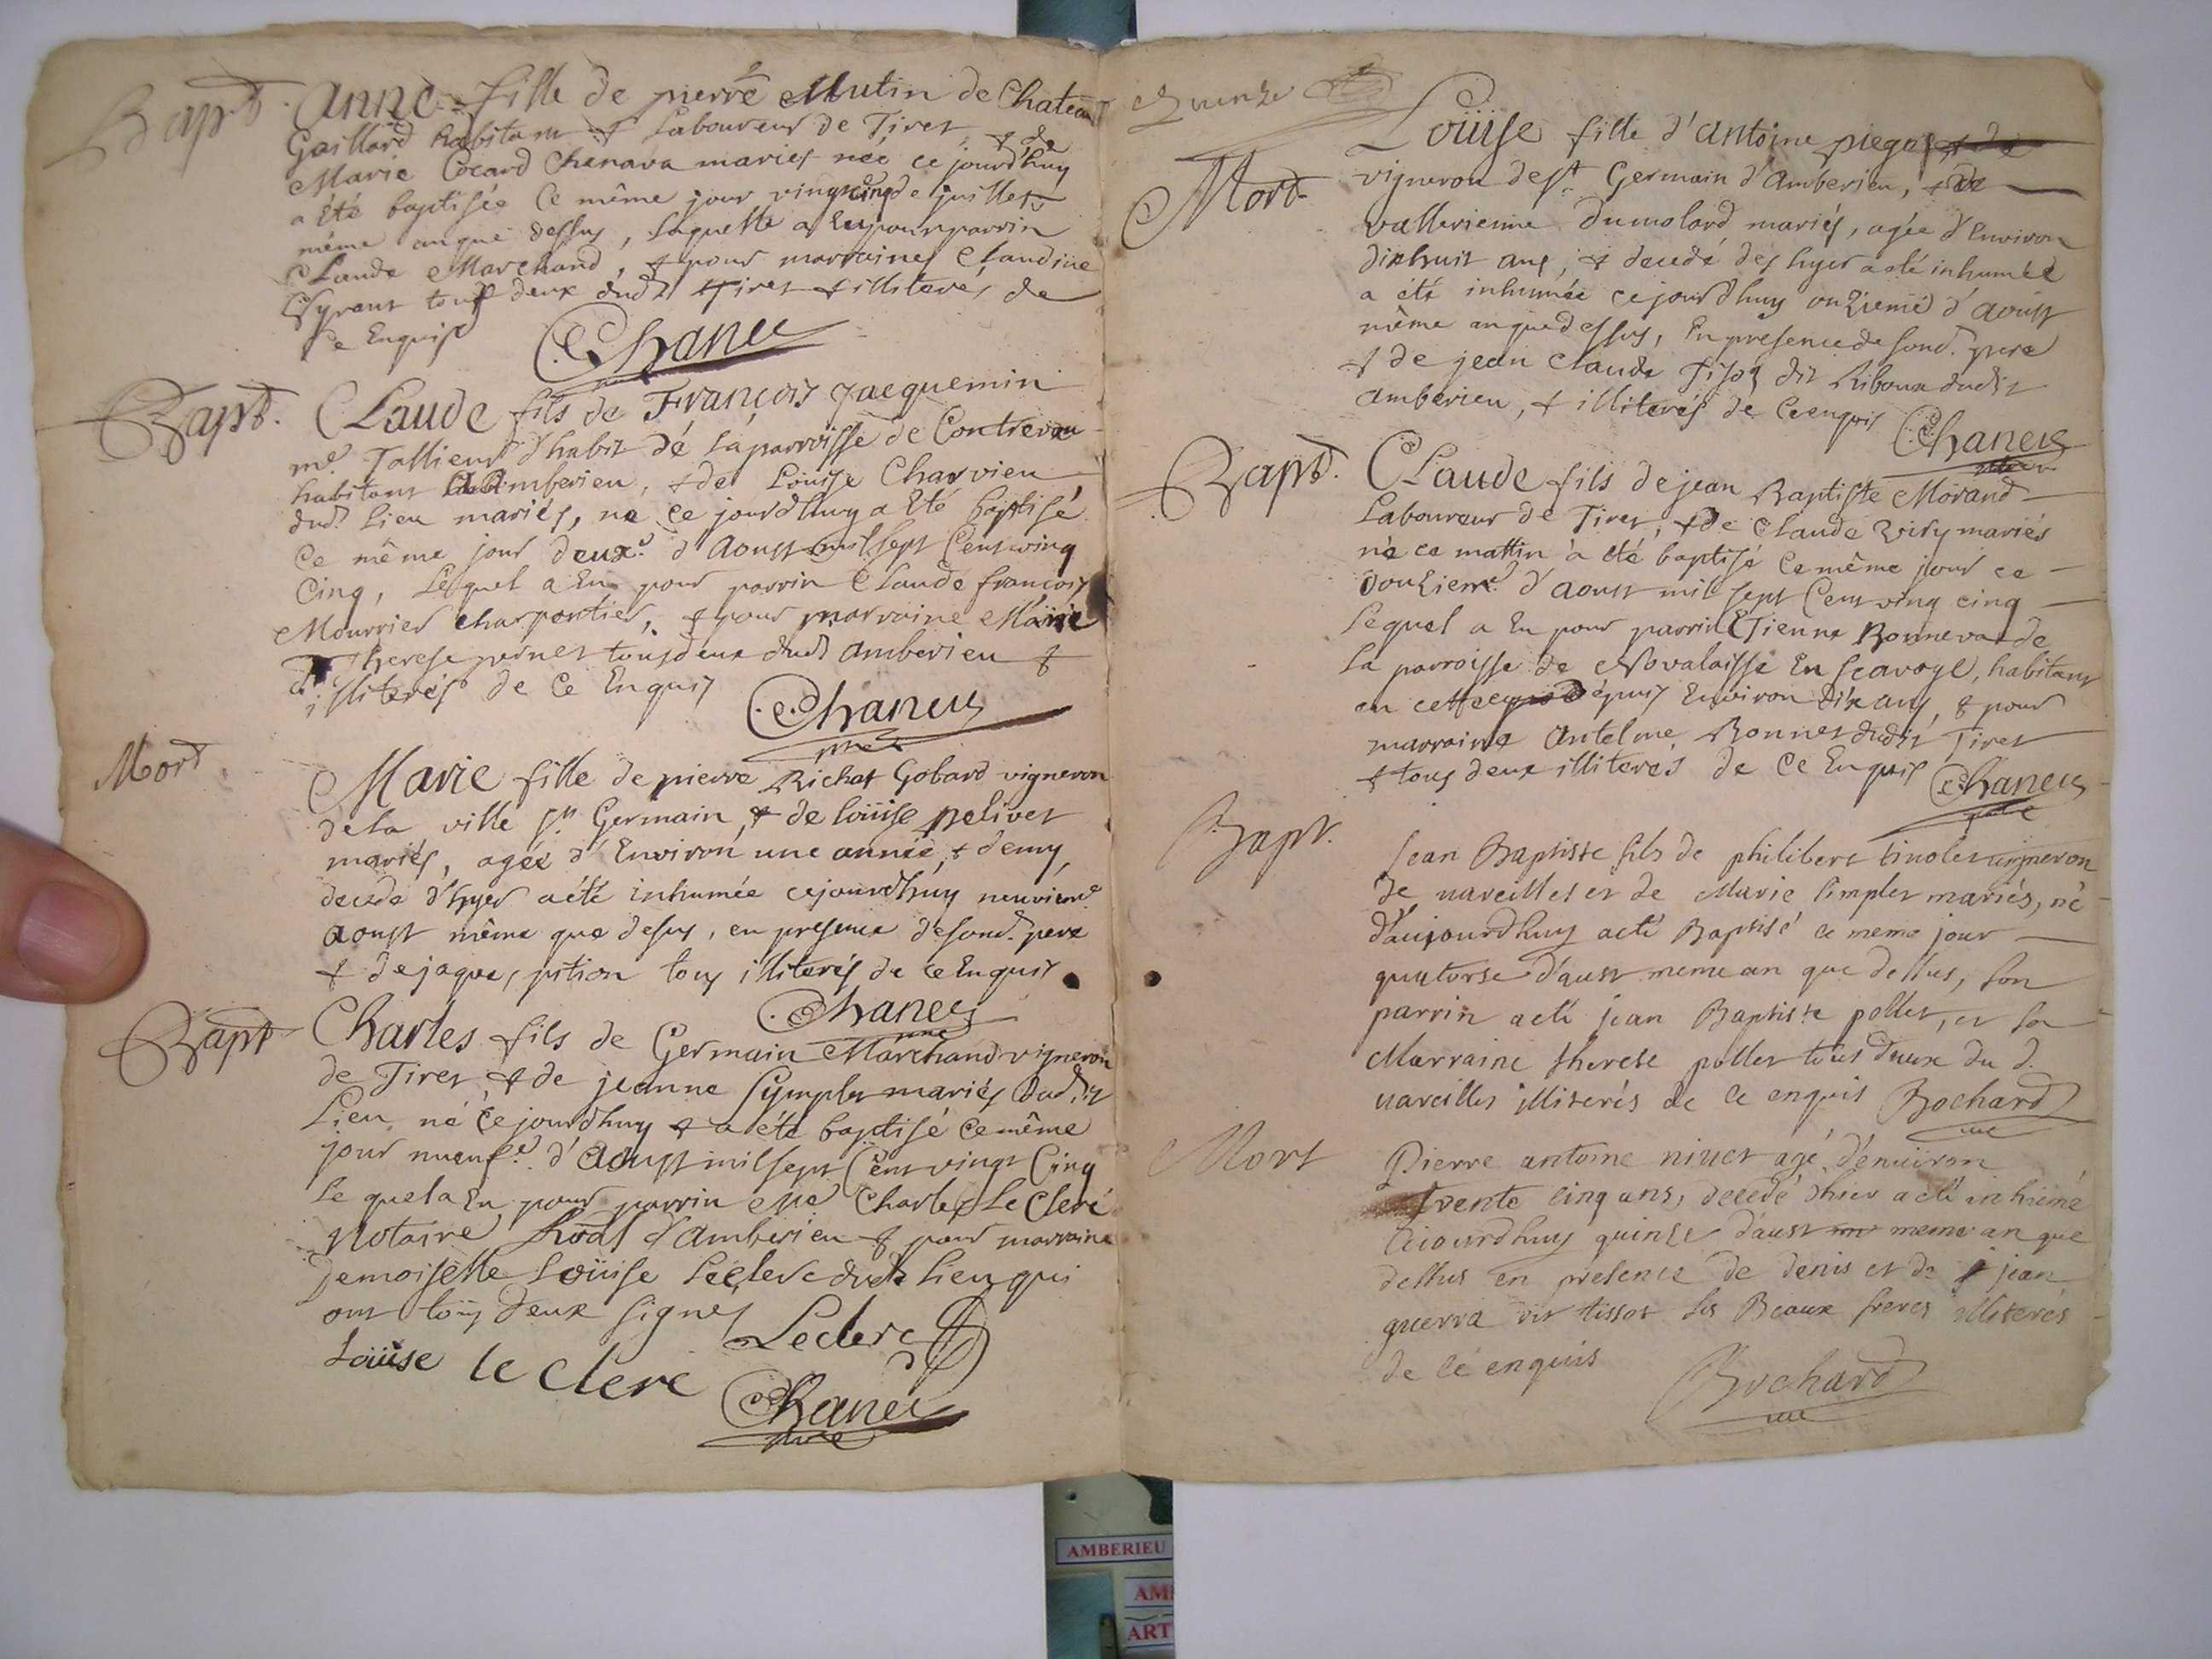 Bapt. Anne fille de pierre Mutin de Chateau
Gaillard habitant & Laboureur de Tiret, & de
Marie Cocard Chenava mariés née ce jourdhuy
a été baptisée Ce même jour vingtcinq de juillet
même an que dessus, laquelle a Eu pour parrin
CLaude Marchand, & pour marraines Claudine
tous deux dudt Tiret & illiteres de
Ce Enquis
Chaneu
Bapt. CLaude fils de François Jacquemin
me. Tallieur d'habit dé La parroisse de Contrevou
habitant Amberieu, & de Loüise Charvieu
dudt Lieu mariés, né ce jourd'huy a Eté baptisé
Ce même jour deuxe. d'Aoust mil sept Cent ving
Cinq, Lequel a Eu pour parrin CLaude françois
Mourrier charpentier, & pour marraine Marie
Therese pernet tous deux dudt Amberieu &
illiterés de Ce Enquis
Chaneu
Mort
Marie fille de pierre Richat Gobard vigneron
dela ville St. Germain, & de loüise pelivet
mariés, agée d'Environ une année & demy
decedé d'hyer a été inhumée cejourdhuy neuvieme
aoust même que desus, en presence de sond. pere
& de jaque pition tous illiterés de ce Enquis
Chaneu
Bapt Charles fils de Germain Marchand vigneron
de Tiret, & de jeanne Symplet mariés dudit
Lieu, né ce jourdhuy & a été baptisé ce même
jour nuenfe. d'Aoust mil sept Cent vingt Cinq
Le quel a Eu pour parrin Me Charles Le Clerc
Notaire Roal d'Amberieu & pour marraine
Demoiselle Loüise Leclerc dudt Lieu qui
ont tous deux signes
Leclerc
Loüise le clerc
Chaneu
curé
Quinze
Mort
Loüise fille d'Antoine piegay & de
vigneron de St. Germain d'Amberieu, & de
vallerienne Dumolard mariés, agée d'Environ
dixhuit ans, & decedé des hyer a été inhumée
a été inhumée cejourdhuy onzieme d'aoust
même an que dessus, En presence de sond. pere
& de jean Claude Tison dit Riboux dudit
Amberieu, & illiterés de Ce enquis
Chaneu
Bapt. CLaude fils de jean Baptiste Morand
Laboureur de Tiret, & de Claude Viry mariés
né ce mattin a été baptisé Ce même jour ce
Douzieme. d'Aoust mil sept Cent ving cinq
Lequel a Eu pour parrin Etienne Bonnevat de
La parroisse de Novalaisse En Scavoye, habitant
en cette dépuis Environ dix ans, & pour
marraine Antelme Bonnet dudit Tiret
& tous deux illiteres de Ce Enquis
Chaneu
Bapt.
Jean Baptiste fils de philibert tinolet vigneron
de vareilles et de Marie Simplet mariés, né
d'aujourdhuy a eté Baptisé ce meme jour
quatorse d'aust meme an que dessus, son
parrin a eté jean Baptiste pollet, et sa
Marraine therese pollet tous deux du d.
vareilles illiterés de ce enquis Bochard
vic
Mort
Pierre antoine nivet agé d'enuiron
trente cinq ans, decedé dhier a eté inhumé
aujourdhuy quinse d'aust meme an que
dessus en presence de denis et de jean
guerra dit tissot ses Beaux freres illiterés
de ce enquis
Bochard
vic
AMBERIEU
AM
ART